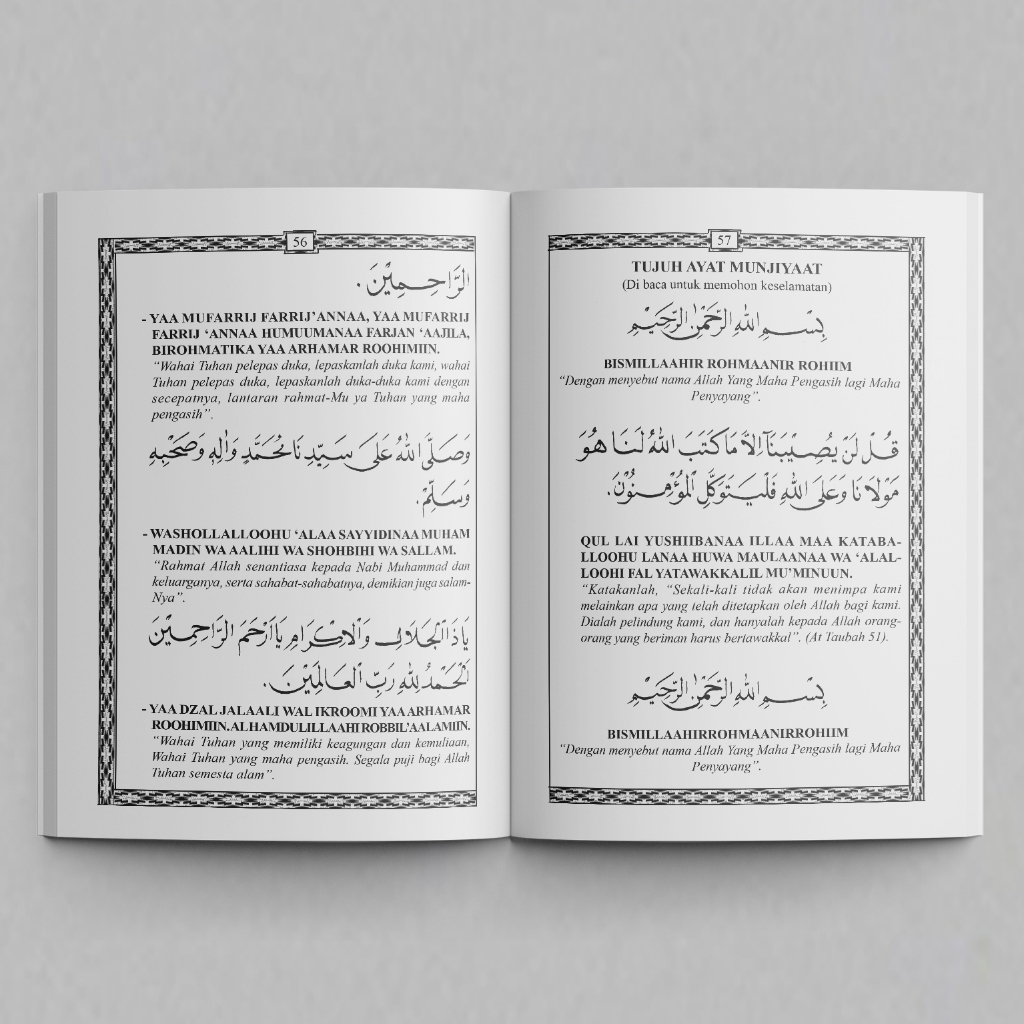 56
الرَّاحِمِيْنَ .
- YAA MUFARRIJ FARRIJ'ANNAA, YAA MUFARRIJ
FARRIJ 'ANNAA HUMUUMANAA FARJAN 'AAJILA,
BIROHMATIKA YAA ARHAMAR ROOHIMIIN.
"Wahai Tuhan pelepas duka, lepaskanlah duka kami, wahai
Tuhan pelepas duka, lepaskanlah duka-duka kami dengan
secepatnya, lantaran rahmat-Mu ya Tuhan yang maha
pengasih".
وَصَلَّى اللهُ عَلَى سَيِّدِنَا مُحَمَّدٍ وَاٰلِهِ وَصَحْبِهِ
وَسَلِّمْ.
- WASHOLLALLOOHU 'ALAA SAYYIDINAA MUHAM
MADIN WA AALIHI WA SHOHBIHI WA SALLAM.
"Rahmat Allah senantiasa kepada Nabi Muhammad dan
keluarganya, serta sahabat-sahabatnya, demikian juga salam-
Nya".
يَاذَا الْجَلَالِ وَالْاِكْرَامِ يَااَرْحَمَ الرَّاحِمِيْنَ
اَلْحَمْدُ لِلّٰهِ رَبِّ الْعَالَمِيْنَ.
- YAA DZAL JALAALI WAL IKROOMI YAA ARHAMAR
ROOHIMIIN. ALHAMDULILLAAHI ROBBIL'AALAMIIN.
"Wahai Tuhan yang memiliki keagungan dan kemuliaan,
Wahai Tuhan yang maha pengasih. Segala puji bagi Allah
Tuhan semesta alam".
57
TUJUH AYAT MUNJIYAAT
(Di baca untuk memohon keselamatan)
بِسْمِ اللهِ الرَّحْمٰنِ الرَّحِيْمِ
BISMILLAAHIR ROHMAANIR ROHIIM
"Dengan menyebut nama Allah Yang Maha Pengasih lagi Maha
Penyayang".
قُلْ لَنْ يُصِيْبَنَآ اِلَّا مَا كَتَبَ اللهُ لَنَا هُوَ
مَوْلَانَا وَعَلَى اللهِ فَلْيَتَوَكَّلِ الْمُؤْمِنُوْنَ.
QUL LAI YUSHIIBANAA ILLAA MAA KATABA-
LLOOHU LANAA HUWA MAULAANAA WA 'ALAL-
LOOHI FAL YATAWAKKALIL MU'MINUUN.
"Katakanlah, "Sekali-kali tidak akan menimpa kami
melainkan apa yang telah ditetapkan oleh Allah bagi kami.
Dialah pelindung kami, dan hanyalah kepada Allah orang-
orang yang beriman harus bertawakkal". (At Taubah 51).
بِسْمِ اللهِ الرَّحْمٰنِ الرَّحِيْمِ
BISMILLAAHIRROHMAANIRROHIIM
"Dengan menyebut nama Allah Yang Maha Pengasih lagi Maha
Penyayang".